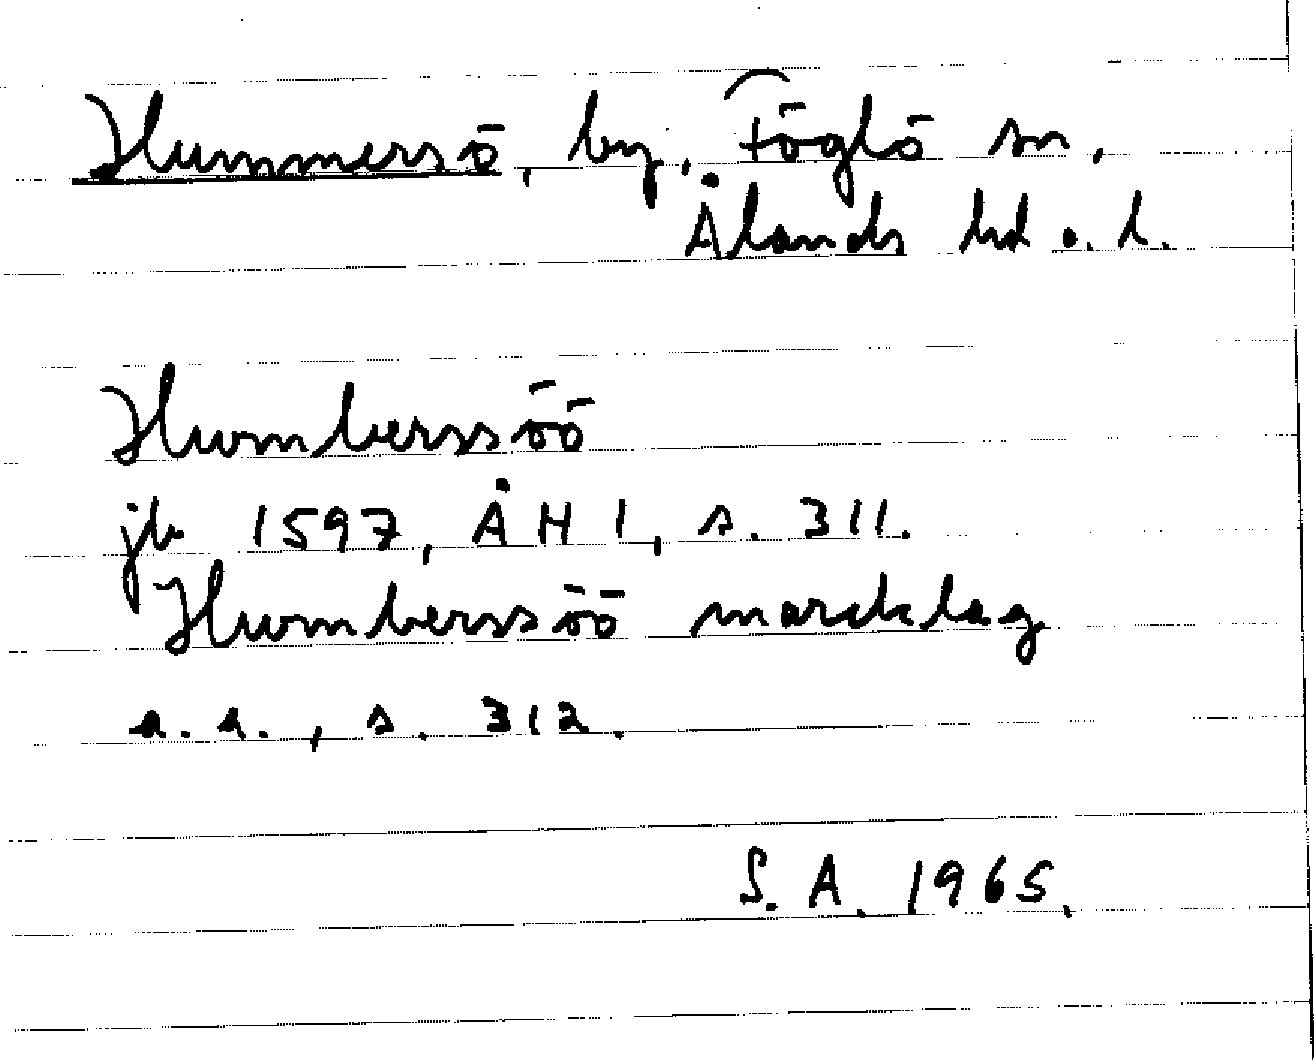 Hummersö, by, Föglö sn,
Ålands hd o. l.
Humberssöö
jb 1597, ÅH 1, s. 311.
Humberssöö marcklag
a. a., s. 312.
S. A. 1965.